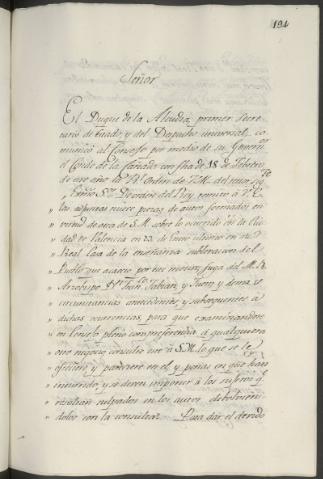 194
Señor
El Duque de la Alcudia, primer Secre
tario de Estado, y del Despacho universal, co
municó al Consejo por medio de su Govern.r
el Conde de la Cañada con fha de 18 de Febrero
de este año la R.l Orden de V.M. del tenor sig.te
" Exmo S.or De orden del Rey remito a V.E.
" las adjuntas nueve piezas de autos formados en
" virtud de otra de S.M. sobre lo ocurrido en la Ciu
" dad de Valencia en 23 de Enero ultimo en la
" Real Casa de la enseñanza sublevacion del
" Pueblo que acaecio por ese motivo, fuga del M.R.
" Arzobispo D.n Fran.co Fabian, y Fuero y demas
" circunstancias antecedentes, y subsequentes a
" dichas ocurrencias, para que examinandose
" en Consejo pleno con preferencia á qualquiera
" otro negocio consulte este á S.M. lo que se le
" ofreciere y pareciere en el, y penas en que han
" incurrido, y se deven imponer á los sugetos q.e
" resultan culpados en los autos debolvien
" dolos con la consulta. Para dar el devido